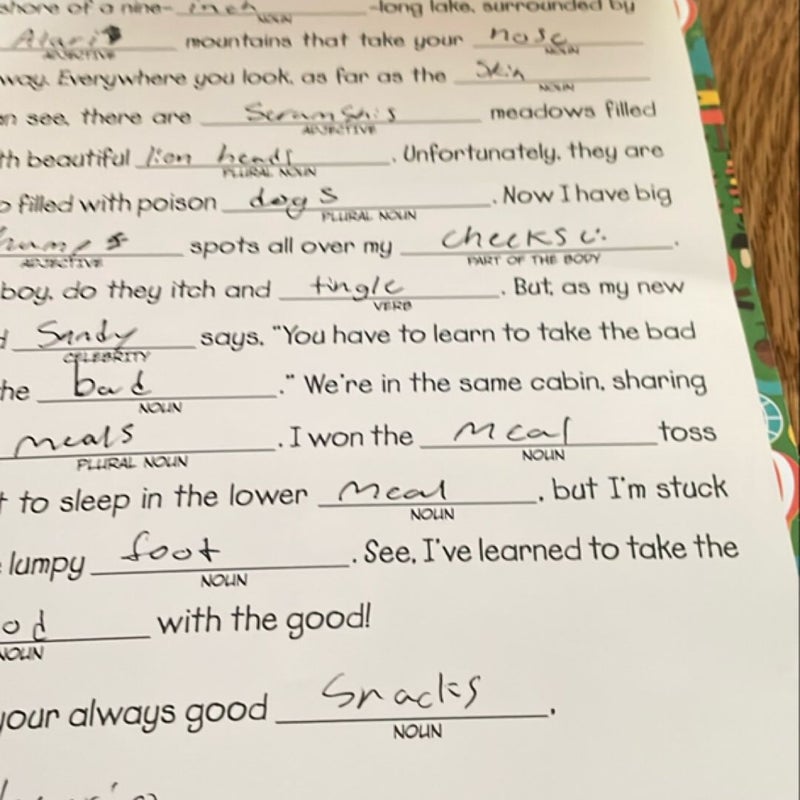 shore of a nine- inch -long lake, surrounded by
NOUN
mountains that take your nose
ADJECTIVE NOUN
way. Everywhere you look, as far as the Skin
NOUN
n see, there are meadows filled
ADJECTIVE
th beautiful lion heads . Unfortunately, they are
PLURAL NOUN
o filled with poison dogs . Now I have big
PLURAL NOUN
spots all over my cheeks .
ADJECTIVE PART OF THE BODY
boy, do they itch and tingle . But, as my new
VERB
Sandy says, "You have to learn to take the bad
CELEBRITY
he bad ." We're in the same cabin, sharing
NOUN
meals . I won the meal toss
PLURAL NOUN NOUN
t to sleep in the lower meal , but I'm stuck
NOUN
lumpy foot . See, I've learned to take the
NOUN
od with the good!
NOUN
your always good Snacks .
NOUN